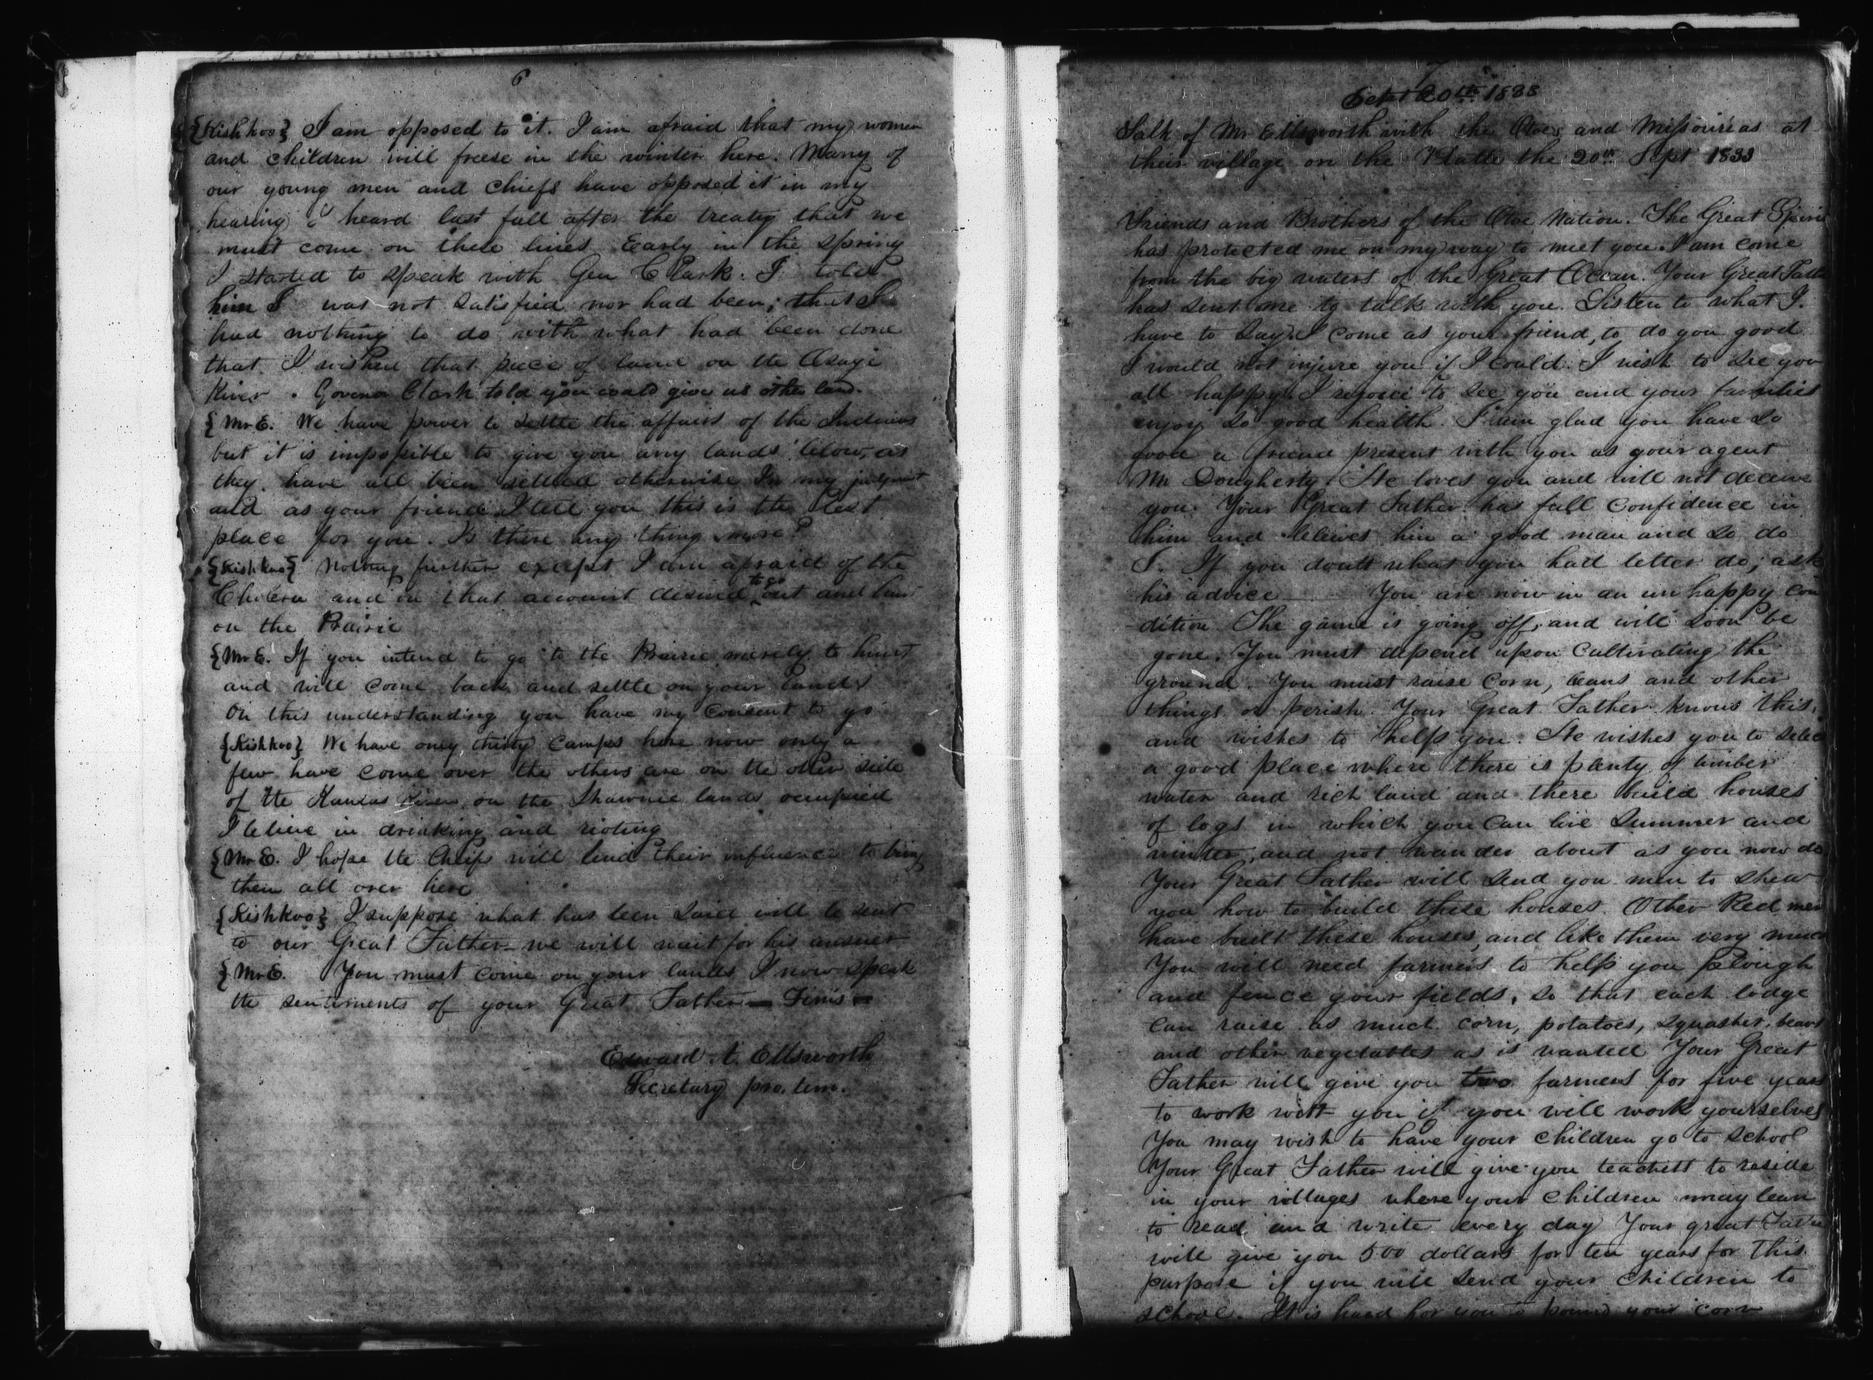 6
{Kishkoo} I am opposed to it. I am afraid that my women
and children will freese in the winter here. Many of
our young men and chiefs have opposed it in my
hearing I heard last fall after the treaty that we
must come on these lines Early in the spring
I started to speak with Gen Clark. I told
him I was not satisfied nor had been; that I
had nothing to do with what had been done
that I wished that piece of land on the Osage
River. Govenor Clark told you could give us other land.
{Mr E. We have power to settle the affairs of the Indians
but it is impossible to give you any lands below, as
they have all been settled otherwise In my judgment
and as your friend I tell you this is the best
place for you. Is there any thing more?
{Kishkoo} Nothing further except I am afraid of the
Cholera and on that account desired to go out and live
on the Prairie
{Mr E. If you intend to go to the Prairie merely to hunt
and will come back and settle on your lands
On this understanding you have my consent to go
{Kishkoo} We have only thirty camps here now only a
few have come over the others are on the other side
of the Kansas River on the Shawnee lands occupied
I believe in drinking and rioting
{Mr E. I hope the Chiefs will lend their influence to bring
them all over here
{Kishkoo} I suppose what has been said will be sent
to our Great Father we will wait for his answer
{Mr E. You must come on your lands I now speak
the sentiments of your Great Father — Finis —
Edward A. Ellsworth
Secretary pro. tem.
7
Sept 20th 1833
Talk of Mr Ellsworth with the Otoes and Missourias at
their village on the Platte the 20th Sept 1833
Friends and Brothers of the Otoe Nation. The Great Spirit
has protected me on my way to meet you. I am come
from the big waters of the Great Ocean. Your Great Father
has sent me to talk with you. Listen to what I
have to say. I come as your friend, to do you good
I would not injure you if I could. I wish to see you
all happy. I rejoice to see you and your families
enjoy so good health. I am glad you have so
good a friend present with you as your agent
Mr Dougherty. He loves you and will not deceive
you. Your Great Father has full confidence in
him and believes him a good man and so do
I. If you doubt what you had better do; ask
his advice You are now in an unhappy con
dition The game is going off, and will soon be
gone. You must depend upon cultivating the
ground. You must raise corn, beans and other
things or perish. Your Great Father knows this,
and wishes to help you. He wishes you to select
a good place where there is plenty of timber
water and rich land and there build houses
of logs in which you can live Summer and
winter, and not wander about as you now do
Your Great Father will send you men to shew
you how to build these houses. Other Red men
have built these houses, and like them very much
You will need farmers to help you plough
and fence your fields, so that each lodge
can raise as much corn, potatoes, squashes, beans
and other vegetables as is wanted Your Great
Father will give you two farmers for five years
to work with you if you will work yourselves
You may wish to have your children go to school
Your Great Father will give you teachers to reside
in your villages where your children may learn
to read and write every day Your great Father
will give you 500 dollars for ten years for this
purpose if you will send your children to
school. It is hard for you to pound your corn